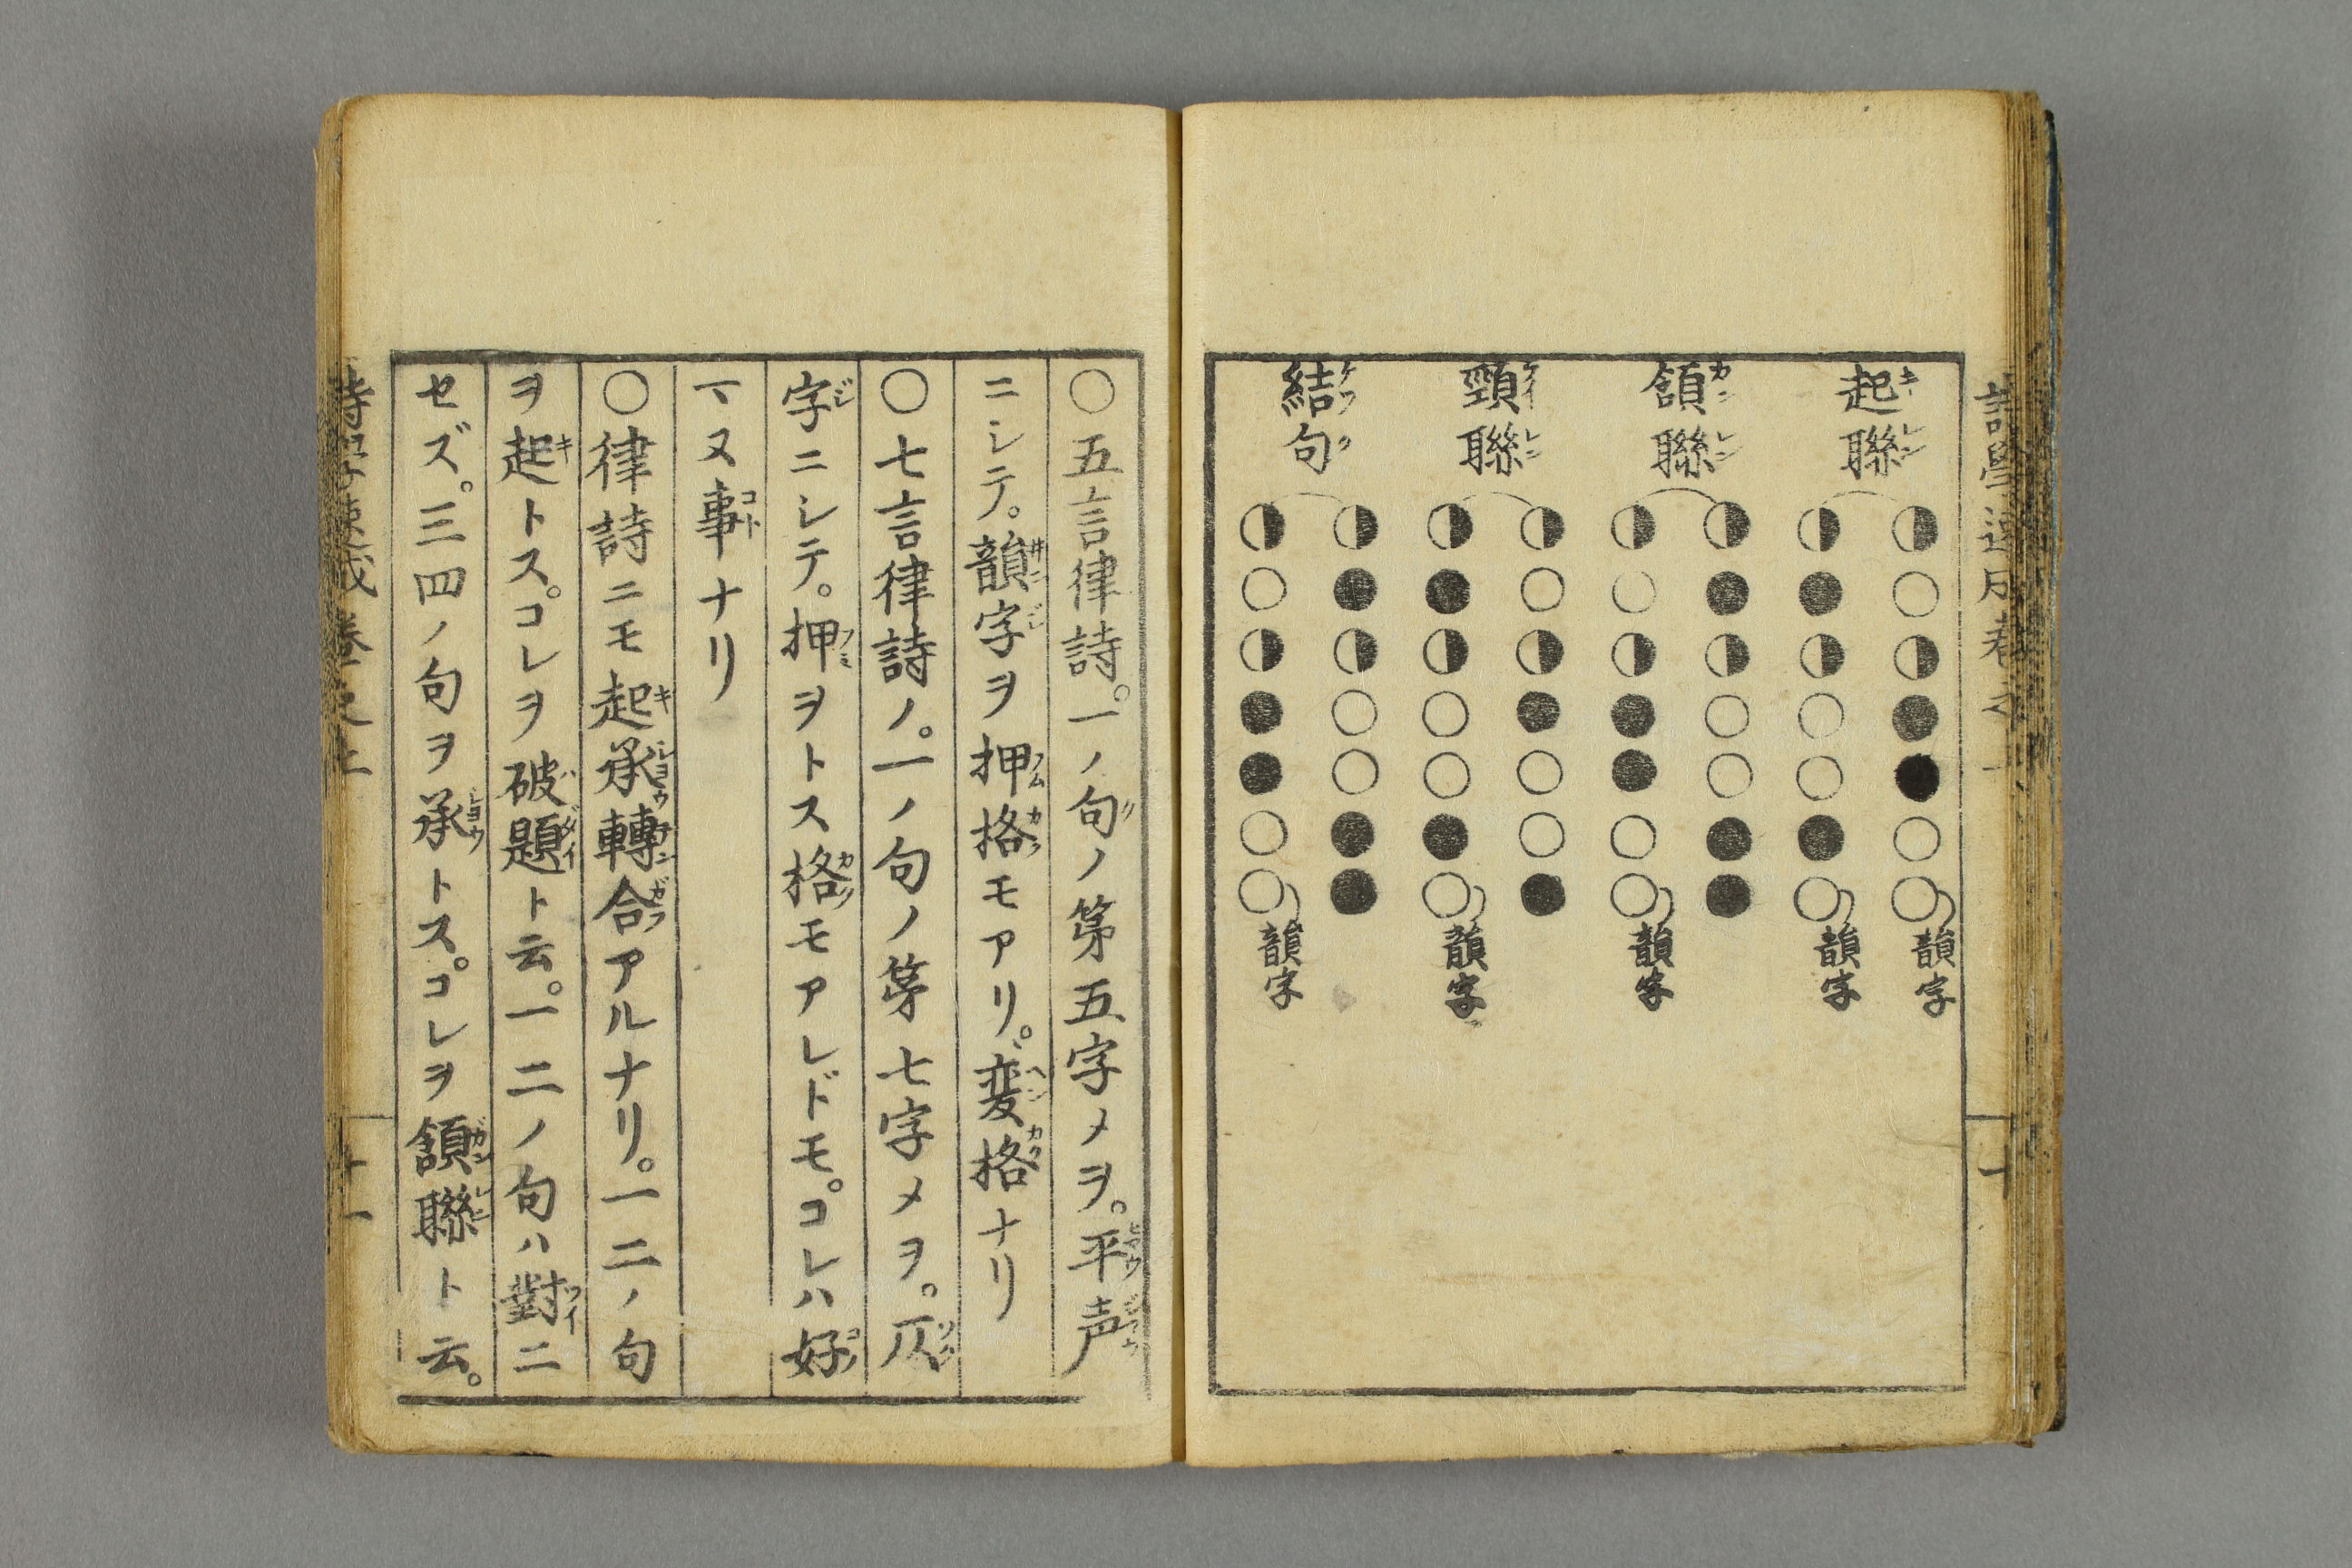 起聯
頷聯
頸聯
結句
◑○◑●●○○韻字
◑●◑○○●○韻字
◑●◑○○●●
◑○◑●●○○韻字
◑○◑●○○●
◑●◑○○●○韻字
◑●◑○○●●
◑○◑●●○○韻字
十
〇五言律詩。一ノ句ノ第五字メヲ。平声
ニシテ。韻字ヲ押格モアリ。変格ナリ
〇七言律詩ノ。一ノ句ノ第七字メヲ。仄
字ニシテ。押ヲトス格モアレドモ。コレハ好
マヌ事ナリ
〇律詩ニモ起承轉合アルナリ。一二ノ句
ヲ起トス。コレヲ破題ト云。一二ノ句ハ對ニ
セズ。三四ノ句ヲ承トス。コレヲ頷聯ト云。
詩學速成卷之上
十一